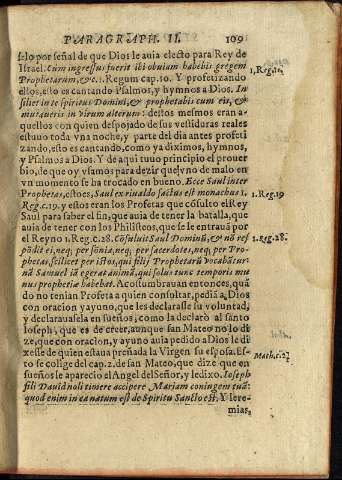 PARAGRAPH. II. 109
selo por señal de que Dios le auia electo para Rey de
Israel. Cùm ingressus fuerit ibi obuiam habebis gregem
Prophetarum, &c. 1. Regum cap. 10. Y profetizando 1. Reg. 10.
estos, esto es cantando Psalmos, y hymnos a Dios. In
siliet in te spiritus Domini, & prophetabis cum eis, &
mutaueris in virum alterum: destos mesmos eran a-
quellos con quien despojado de sus vestiduras reales
estuuo toda vna noche, y parte del dia antes profeti
zando, esto es cantando, como ya diximos, hymnos,
y Psalmos a Dios. Y de aqui tuuo principio el prouer
bio, de que oy vsamos para dezir que vno de malo en
vn momento se ha trocado en bueno. Ecce Saul inter
Prophetas, estoes, Saul ex riualdo factus est monachus 1. 1. Reg. 19
Reg. c. 19. y estos eran los Profetas que cōsulto el Rey
Saul para saber el fin, que auia de tener la batalla, que
auia de tener con los Philisteos, que se le entraua por
el Reyno 1. Reg. c. 28. Cōsuluit Saul Dominū, & nō res 1. reg. 28.
pōdit ei, neq; per sōnia, neq; per sacerdotes, neq; per Pro-
phetas, scilicet per istos, qui filij Prophetarū vocabātur:
nā Samuel iā egerat animā, qui solus tunc temporis mu
nus prophetiæ habebat. Acostumbrauan entonces, quā
do no tenian Profeta a quien consultar, pedir a Dios
con oracion y ayuno, que les declarasse su voluntad,
y declarauasela en sueños, como la declarò al santo
Ioseph, que es de creer, aunque san Mateo no lo di
ze, que con oracion, y ayuno auia pedido a Dios le di
xesse de quien estaua preñada la Virgen su esposa. Es-
to se colige del cap. 2. de san Mateo, que dize que en Math. 1.
sueños le aparecio el Angel del Señor, y le dixo. Ioseph
fili Dauid noli timere accipere Mariam coniugem tuā:
quod enim in ea natum est de Spiritu Sancto est. Y Iere-
mias,